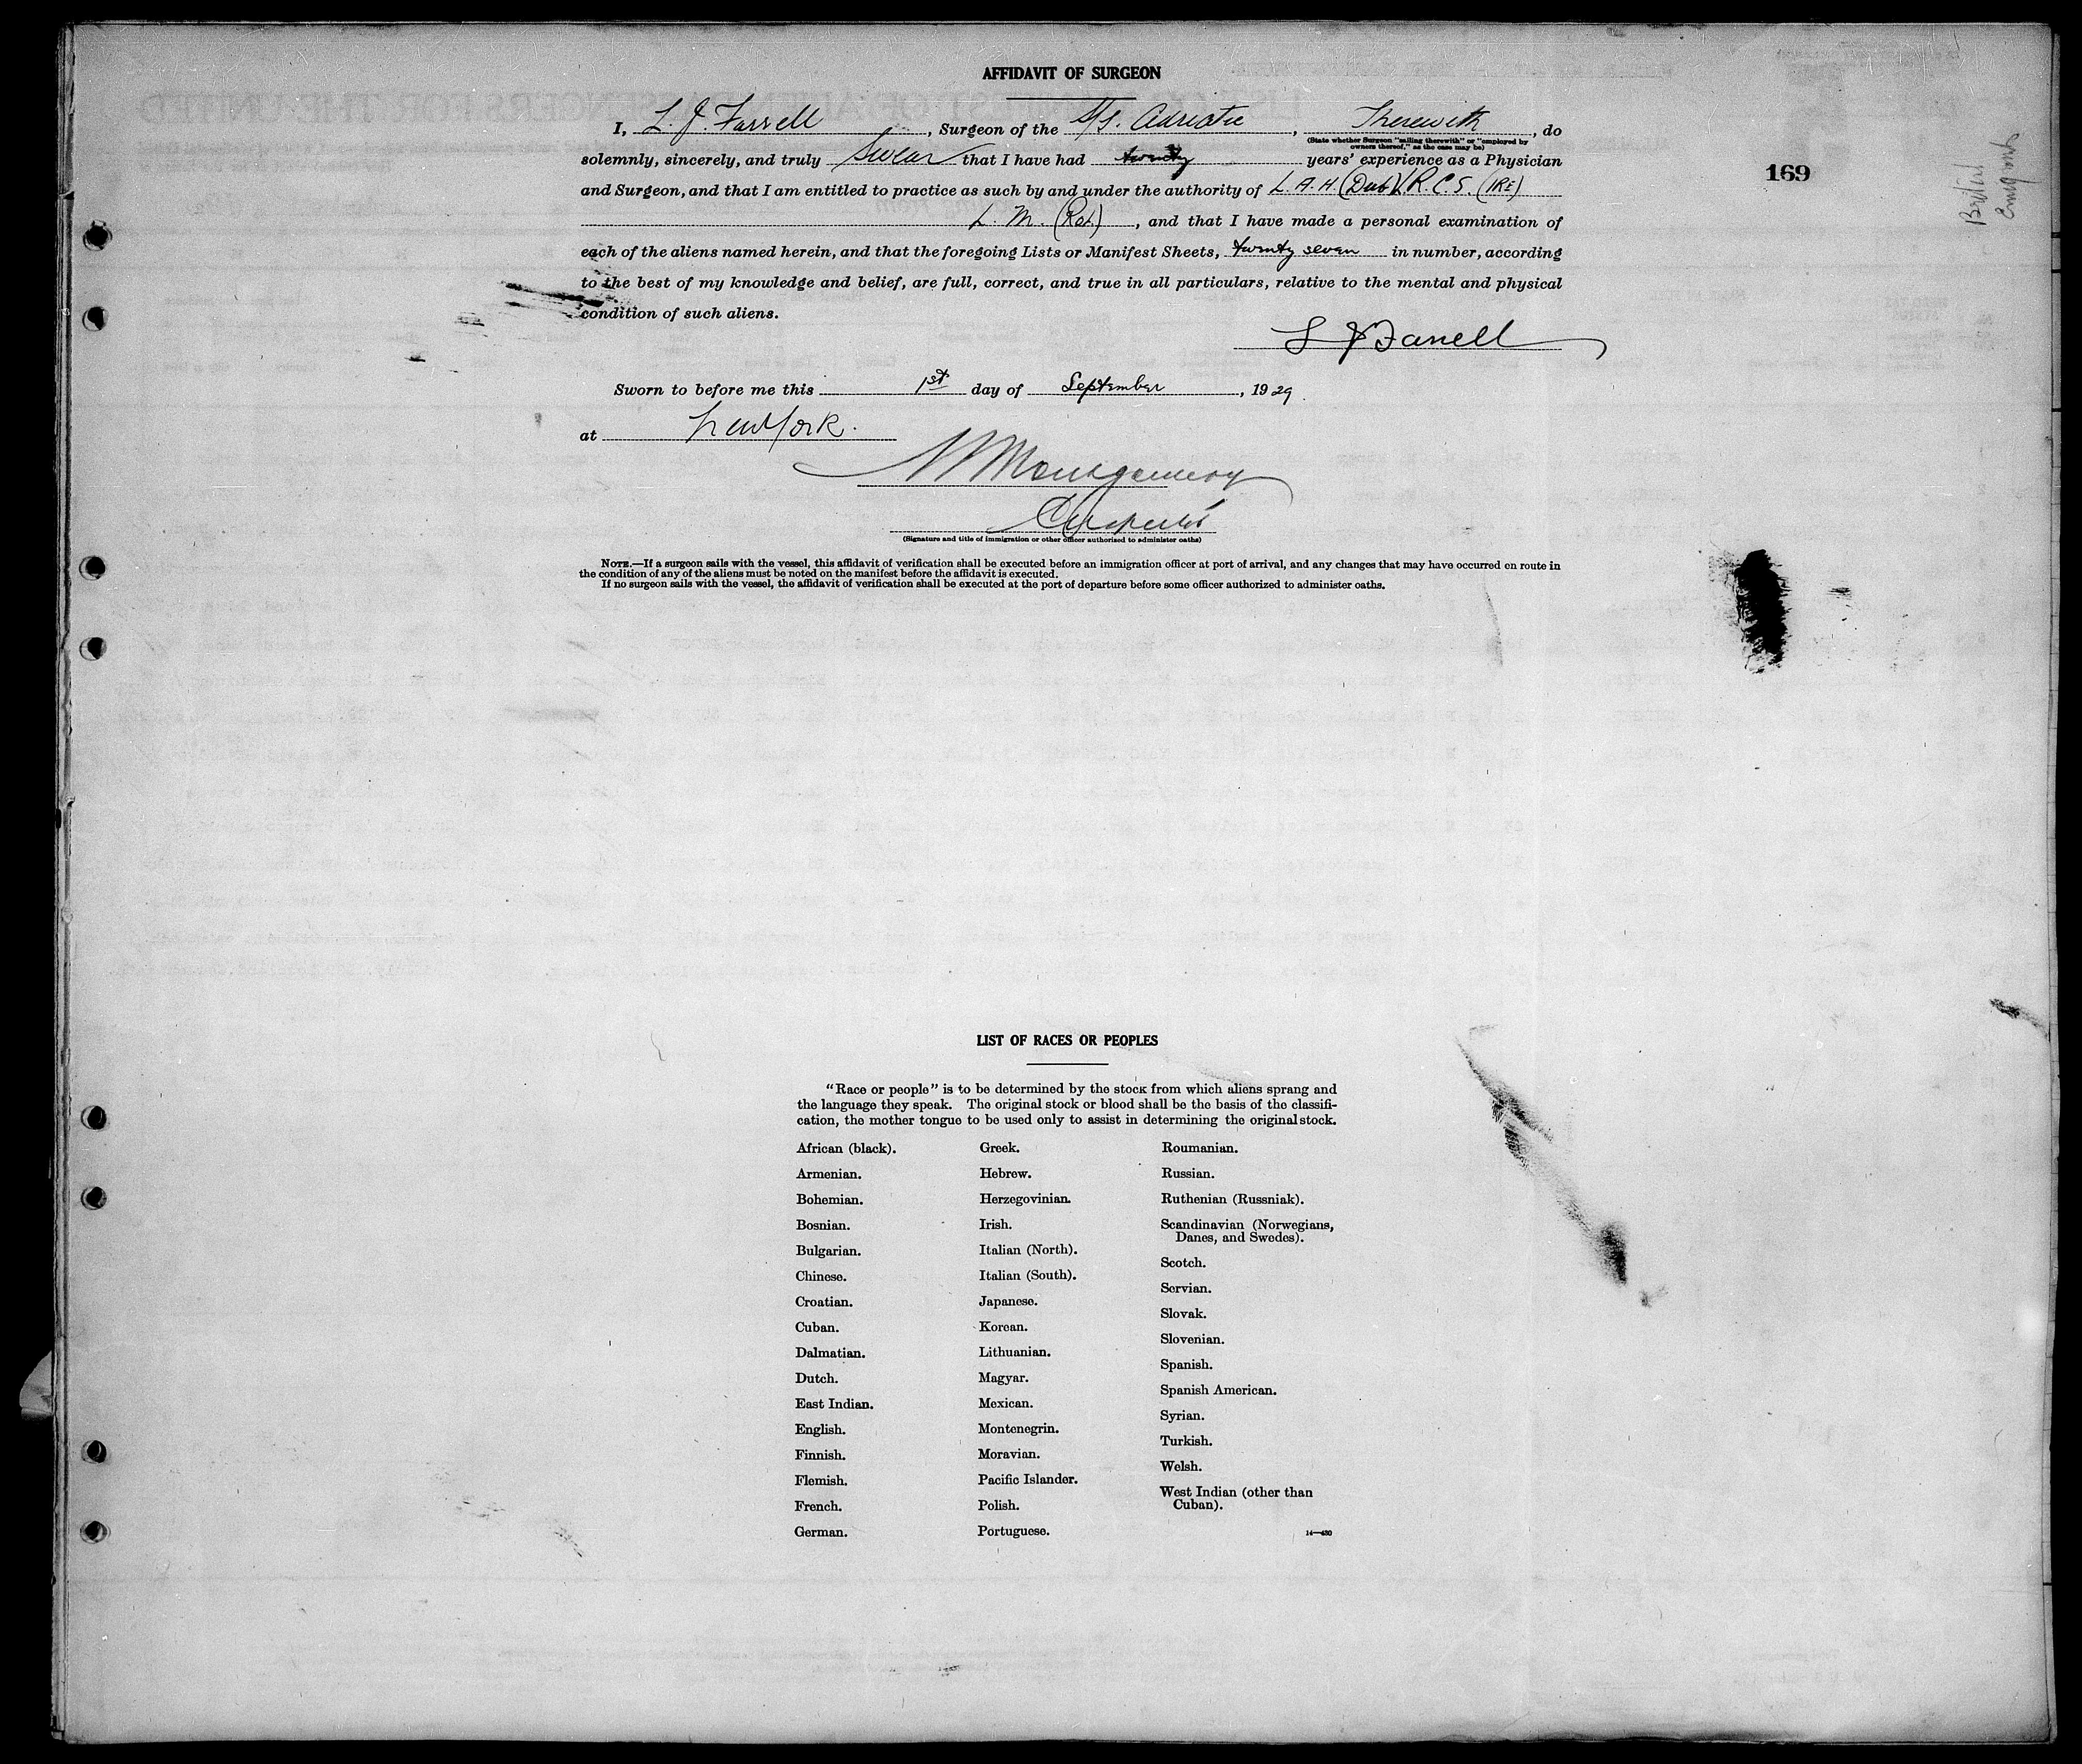 AFFIDAVIT OF SURGEON
I, L. J. Farrell, Surgeon of the S/S. Adriatic, Therewith, do
(State whether Surgeon "sailing therewith" or "employed by owners thereof," as the case may be)
solemnly, sincerely, and truly Swear that I have had twenty years' experience as a Physician
and Surgeon, and that I am entitled to practice as such by and under the authority of L. A. H. (Dub) L. R. C. S. (IRE)
L. M. (Rot), and that I have made a personal examination of
each of the aliens named herein, and that the foregoing Lists or Manifest Sheets, twenty seven in number, according
to the best of my knowledge and belief, are full, correct, and true in all particulars, relative to the mental and physical
condition of such aliens.
L J Farrell
Sworn to before me this 1st day of September, 1929.
at New York.
Montgomery
(Signature and title of immigration or other officer authorized to administer oaths)
NOTE.—If a surgeon sails with the vessel, this affidavit of verification shall be executed before an immigration officer at port of arrival, and any changes that may have occurred en route in
the condition of any of the aliens must be noted on the manifest before the affidavit is executed.
If no surgeon sails with the vessel, the affidavit of verification shall be executed at the port of departure before some officer authorized to administer oaths.
169
British
LIST OF RACES OR PEOPLES
"Race or people" is to be determined by the stock from which aliens sprang and
the language they speak. The original stock or blood shall be the basis of the classifi-
cation, the mother tongue to be used only to assist in determining the original stock.
African (black).
Armenian.
Bohemian.
Bosnian.
Bulgarian.
Chinese.
Croatian.
Cuban.
Dalmatian.
Dutch.
East Indian.
English.
Finnish.
Flemish.
French.
German.
Greek.
Hebrew.
Herzegovinian.
Irish.
Italian (North).
Italian (South).
Japanese.
Korean.
Lithuanian.
Magyar.
Mexican.
Montenegrin.
Moravian.
Pacific Islander.
Polish.
Portuguese.
Roumanian.
Russian.
Ruthenian (Russniak).
Scandinavian (Norwegians,
Danes, and Swedes).
Scotch.
Servian.
Slovak.
Slovenian.
Spanish.
Spanish American.
Syrian.
Turkish.
Welsh.
West Indian (other than
Cuban).
14—430